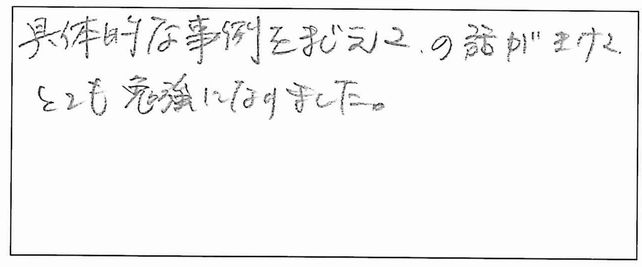 具体的な事例をまじえて、の話がきけて
とても勉強になりました。